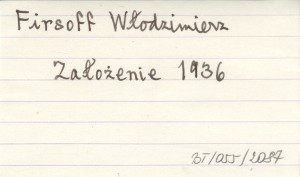 Firsoff Włodzimierz
Założenie 1936
BT/055/2087